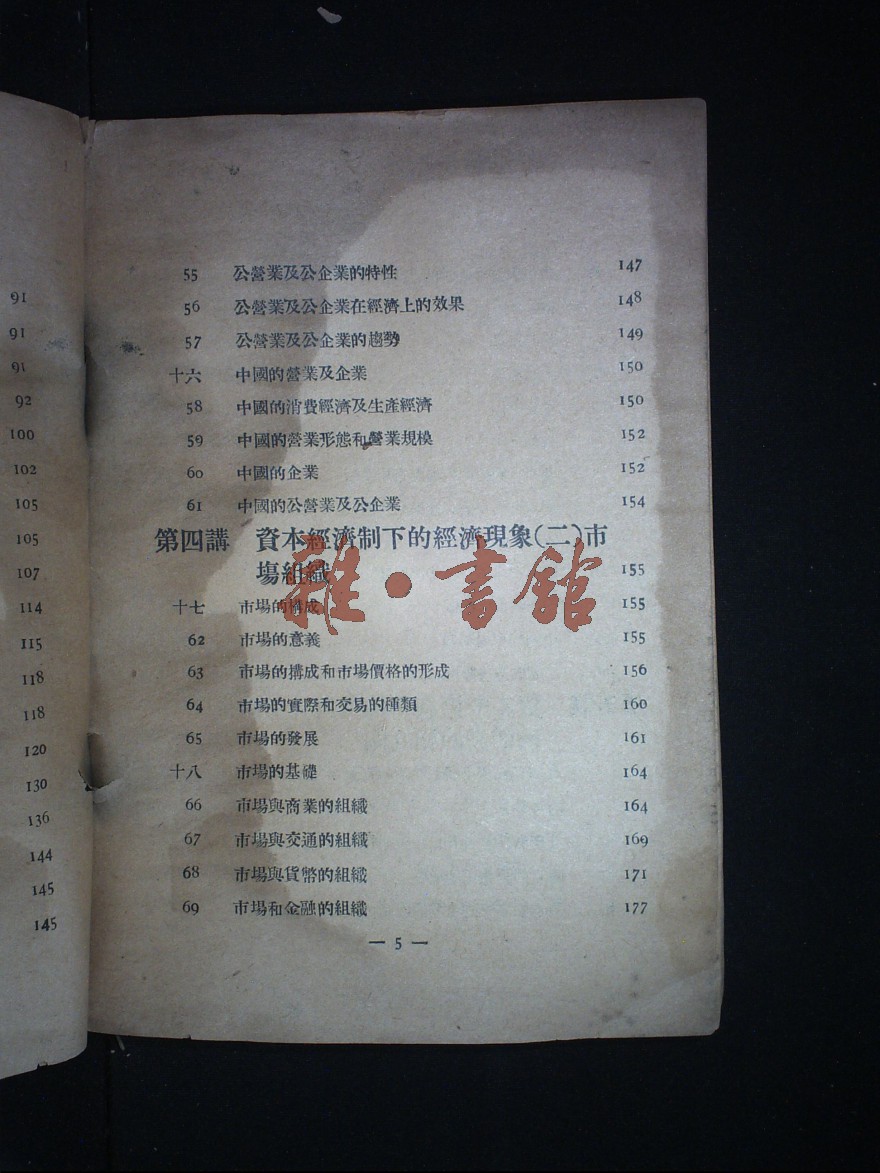 91
91
91
92
100
102
105
105
107
114
115
118
118
120
130
136
144
145
145
55 公營業及公企業的特性 147
56 公營業及公企業在經濟上的效果 148
57 公營業及公企業的趨勢 149
十六 中國的營業及企業 150
58 中國的消費經濟及生產經濟 150
59 中國的營業形態和營業規模 152
60 中國的企業 152
61 中國的公營業及公企業 154
第四講 資本經濟制下的經濟現象(二)市
場組織 155
十七 市場的構成 155
62 市場的意義 155
63 市場的構成和市場價格的形成 156
64 市場的實際和交易的種類 160
65 市場的發展 161
十八 市場的基礎 164
66 市場與商業的組織 164
67 市場與交通的組織 169
68 市場與貨幣的組織 171
69 市場和金融的組織 177
— 5 —
雜·書館